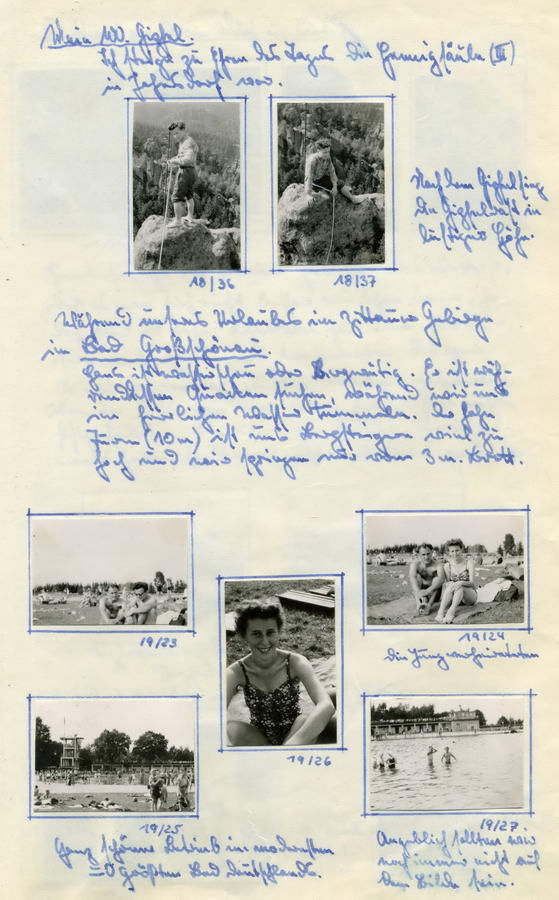 Mein 100. Gipfel.
Ich steige zu Ehren des Tages die (III)
in vor.
18/36
18/37
Nach dem Gipfelsieg
die Gipfelrast in
luftiger Höhe.
Während unseres Urlaubes im Zittauer Gebirge
in Bad Großschönau.
Hans ist oder Es ist
während wir uns
im herrlichen Wasser tummeln. Der hohe
Turm (10m) ist uns Bergsteigern viel zu
hoch und wir springen nur vom 3 m. Brett.
19/23
19/24
Die Jungverheirateten
19/26
19/25
19/27
Ganz schöner Betrieb im modernsten
und größten Bad Deutschlands.
Angeblich sollten wir
noch immer nicht auf
dem Bilde sein.